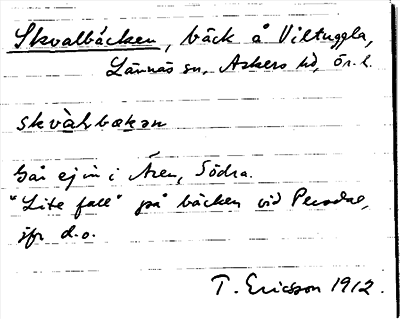 Skvalbäcken, bäck å Viltuggla,
Lännäs sn, Askers hd, Ör. l.
skvàlsbäkən
Går ej in i Åren, Södra.
"Lite fall" på bäcken vid
jfr d.o.
T. Ericsson 1912.